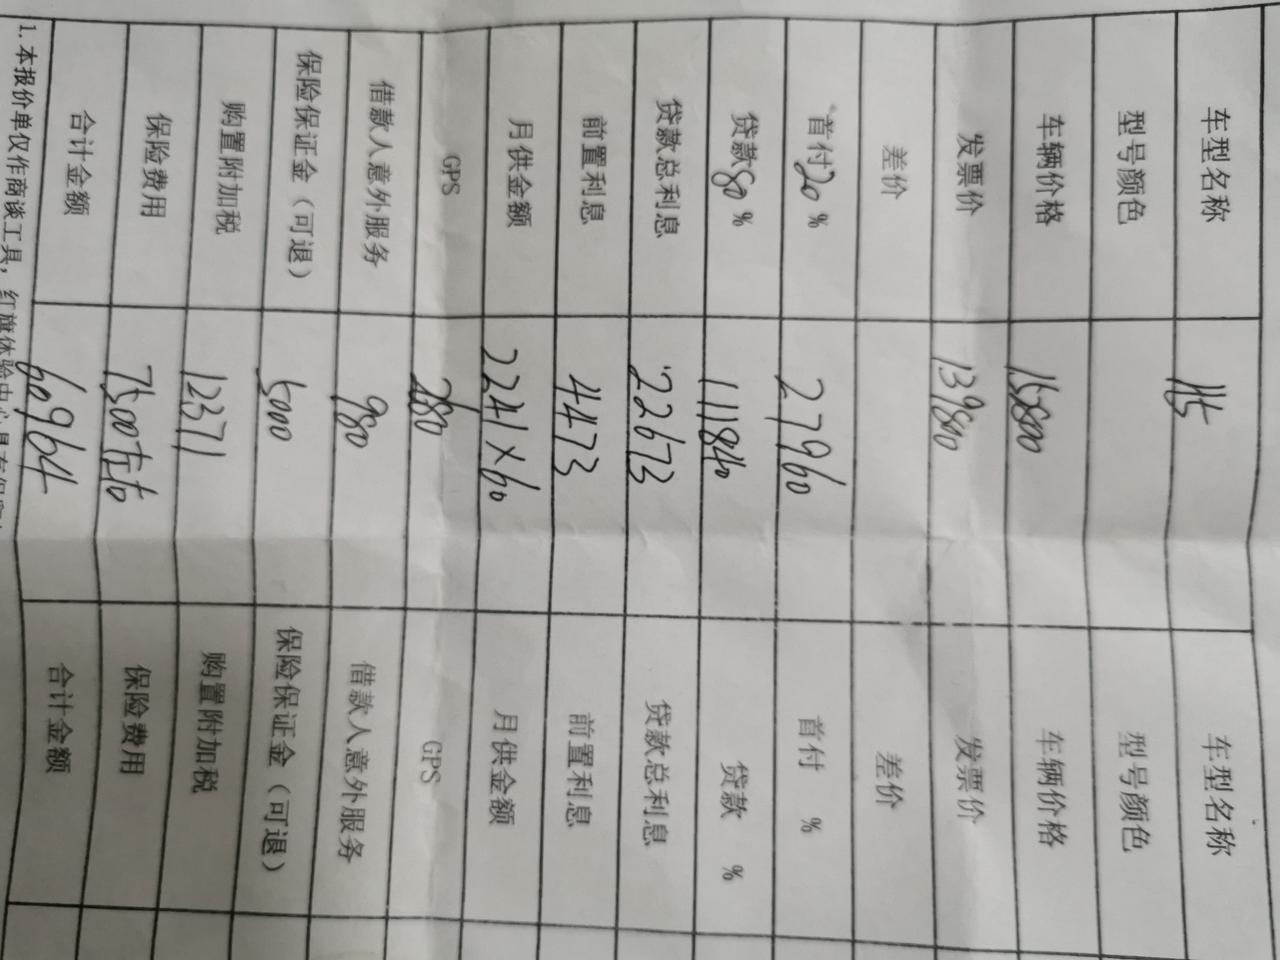 车型名称 H5 车型名称
型号颜色 型号颜色
车辆价格 车辆价格
发票价 139800 发票价
差价 差价
首付20% 27960 首付 %
贷款80% 111840 贷款 %
贷款总利息 22673 贷款总利息
前置利息 4473 前置利息
月供金额 2241×60 月供金额
GPS 2680 GPS
借款人意外服务 980 借款人意外服务
保险保证金（可退） 5000 保险保证金（可退）
购置附加税 12371 购置附加税
保险费用 7500左右 保险费用
合计金额 60964 合计金额
1.本报价单仅作商谈工具，红旗体验中心具有